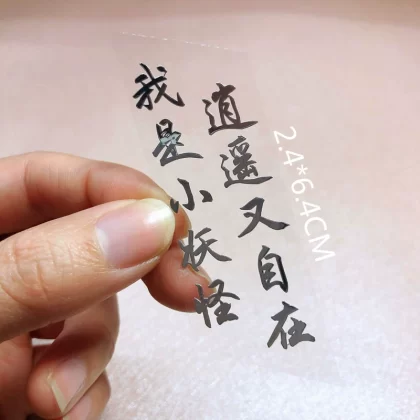 我是小妖怪
逍遥又自在
2.4*6.4CM